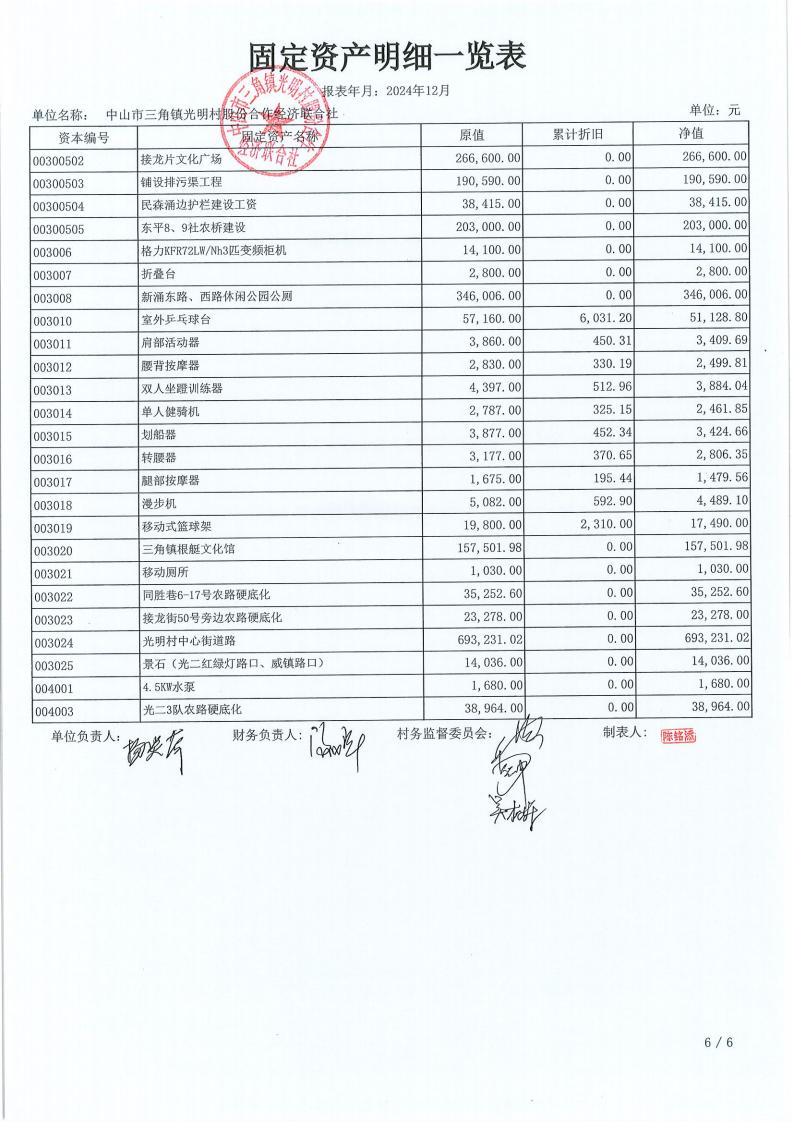 固定资产明细一览表
报表年月：2024年12月
单位名称： 中山市三角镇光明村股份合作经济联合社 单位：元
资本编号 固定资产名称 原值 累计折旧 净值
00300502 接龙片文化广场 266,600.00 0.00 266,600.00
00300503 铺设排污渠工程 190,590.00 0.00 190,590.00
00300504 民森涌边护栏建设工资 38,415.00 0.00 38,415.00
00300505 东平8、9社农桥建设 203,000.00 0.00 203,000.00
003006 格力KFR72LW/Nh3匹变频柜机 14,100.00 0.00 14,100.00
003007 折叠台 2,800.00 0.00 2,800.00
003008 新涌东路、西路休闲公园公厕 346,006.00 0.00 346,006.00
003010 室外乒乓球台 57,160.00 6,031.20 51,128.80
003011 肩部活动器 3,860.00 450.31 3,409.69
003012 腰背按摩器 2,830.00 330.19 2,499.81
003013 双人坐蹬训练器 4,397.00 512.96 3,884.04
003014 单人健骑机 2,787.00 325.15 2,461.85
003015 划船器 3,877.00 452.34 3,424.66
003016 转腰器 3,177.00 370.65 2,806.35
003017 腿部按摩器 1,675.00 195.44 1,479.56
003018 漫步机 5,082.00 592.90 4,489.10
003019 移动式篮球架 19,800.00 2,310.00 17,490.00
003020 三角镇根艇文化馆 157,501.98 0.00 157,501.98
003021 移动厕所 1,030.00 0.00 1,030.00
003022 同胜巷6-17号农路硬底化 35,252.60 0.00 35,252.60
003023 接龙街50号旁边农路硬底化 23,278.00 0.00 23,278.00
003024 光明村中心街道路 693,231.02 0.00 693,231.02
003025 景石（光二红绿灯路口、威镇路口） 14,036.00 0.00 14,036.00
004001 4.5KW水泵 1,680.00 0.00 1,680.00
004003 光二3队农路硬底化 38,964.00 0.00 38,964.00
单位负责人： 财务负责人： 村务监督委员会： 制表人：
6 / 6